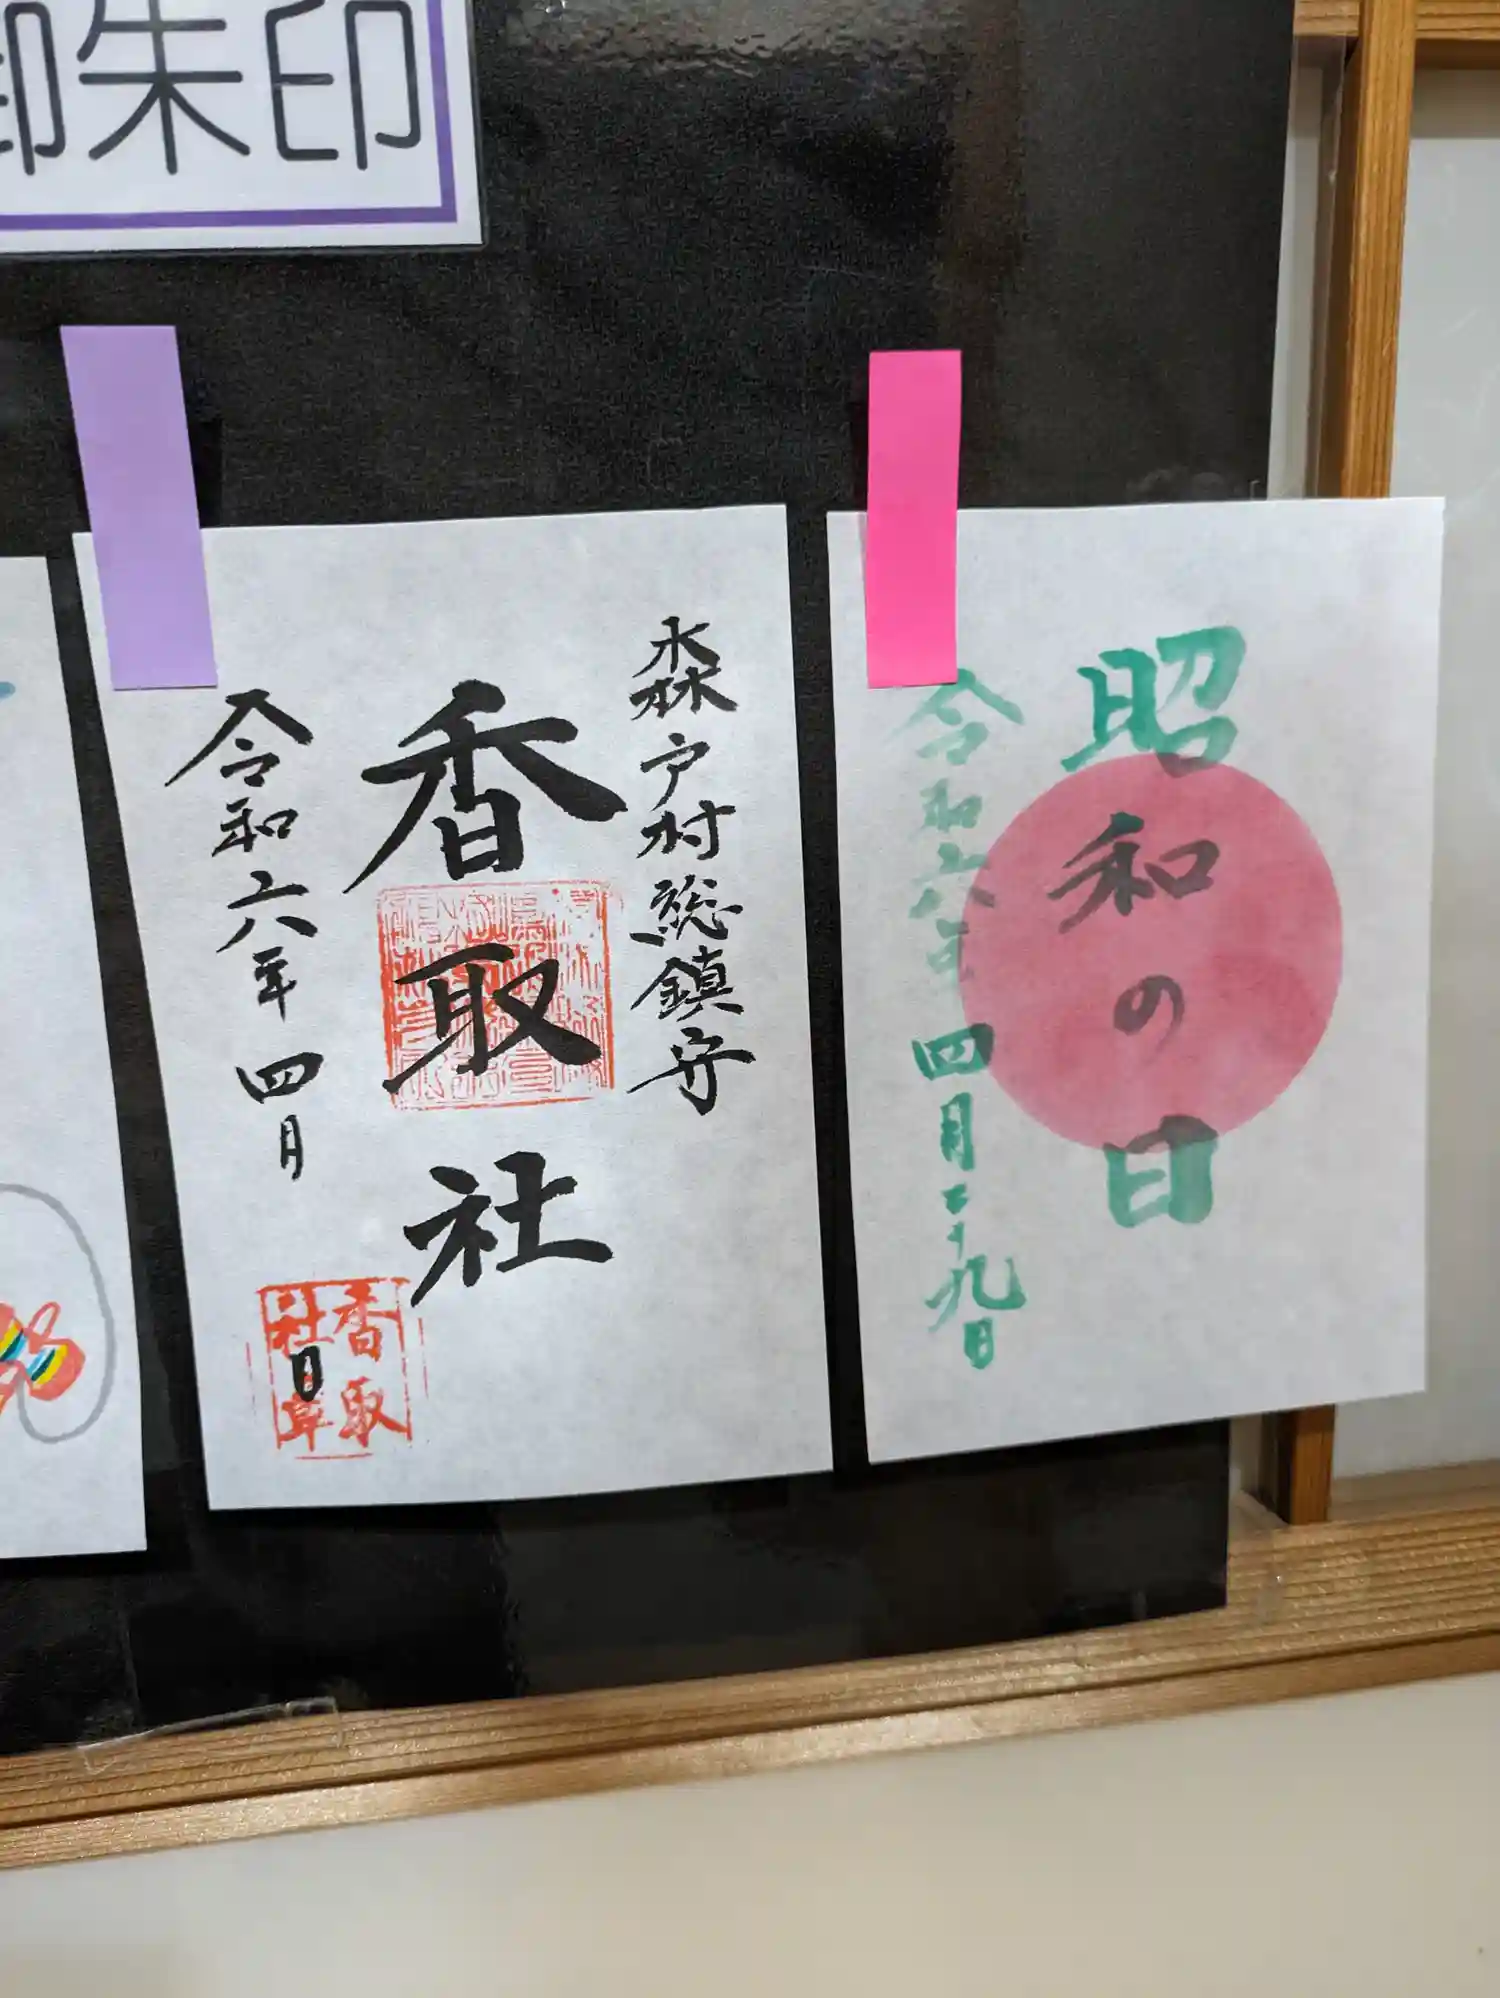 御朱印
森戸村総鎮守
香取社
令和六年 四月 日
香取
社
昭和の日
令和六年 四月二十九日